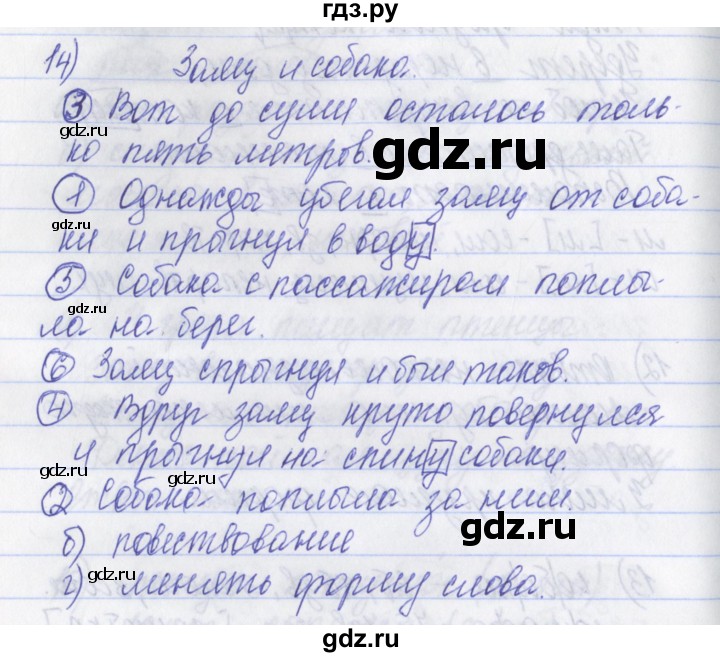 гдз.ру
14) Заяц и собака.
③ Вот до суши осталось толь-
ко пять метров.
① Однажды убегал заяц от соба-
ки и прыгнул в воду.
⑤ Собака с пассажиром поплы-
ла на берег.
⑥ Заяц спрыгнул и был таков.
④ Вдруг заяц круто повернулся
и прыгнул на спину собаки.
② Собака поплыла за ним.
б) повествование
г) менять форму слова.
gdz.ru
gdz.ru
gdz.ru
gdz.ru
gdz.ru
gdz.ru
gdz.ru
gdz.ru
gdz.ru
gdz.ru